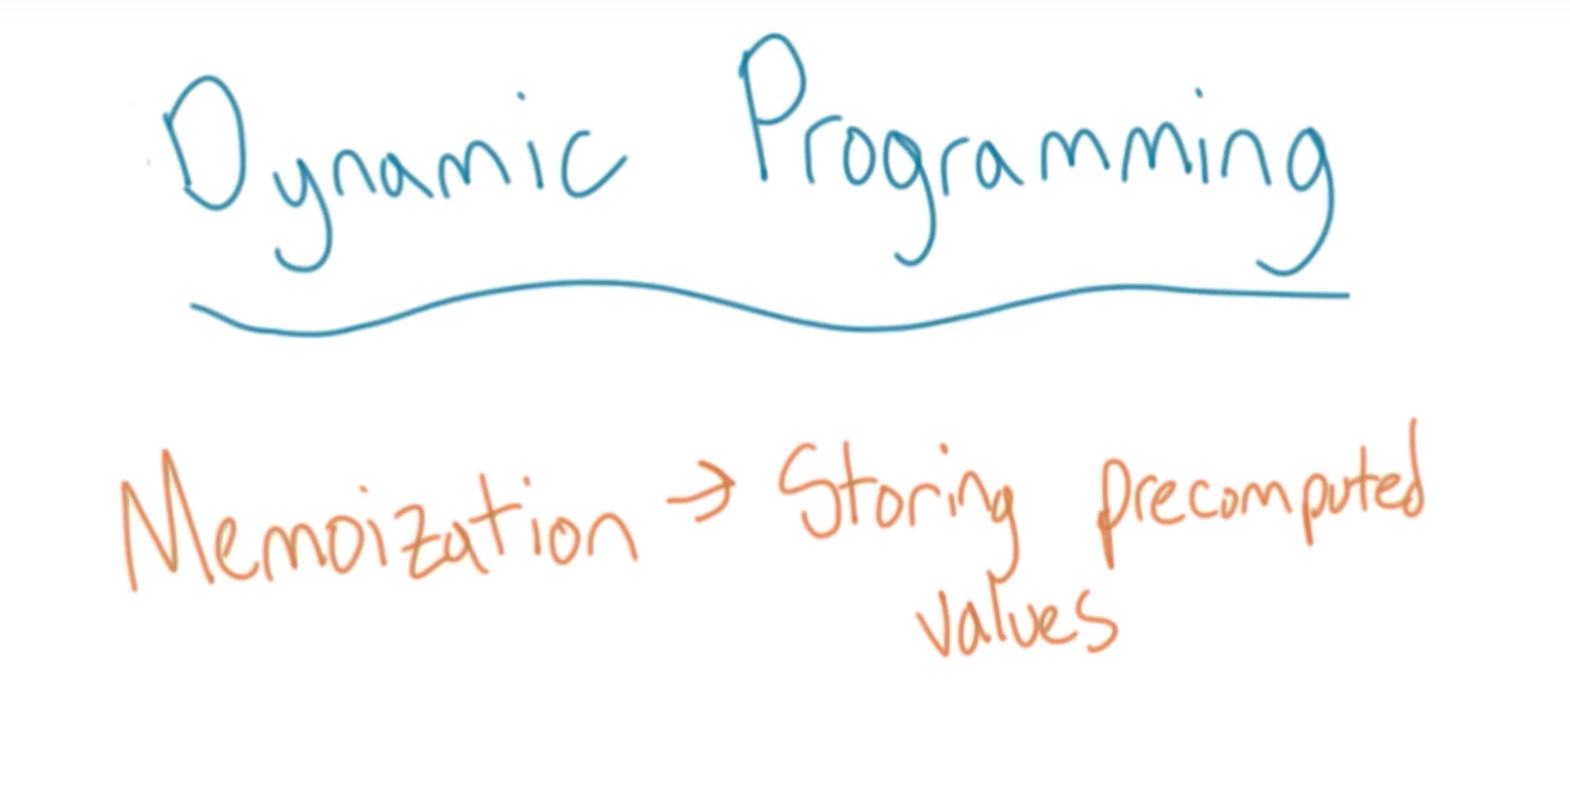 Dynamic Programming
Memoization → Storing precomputed
values